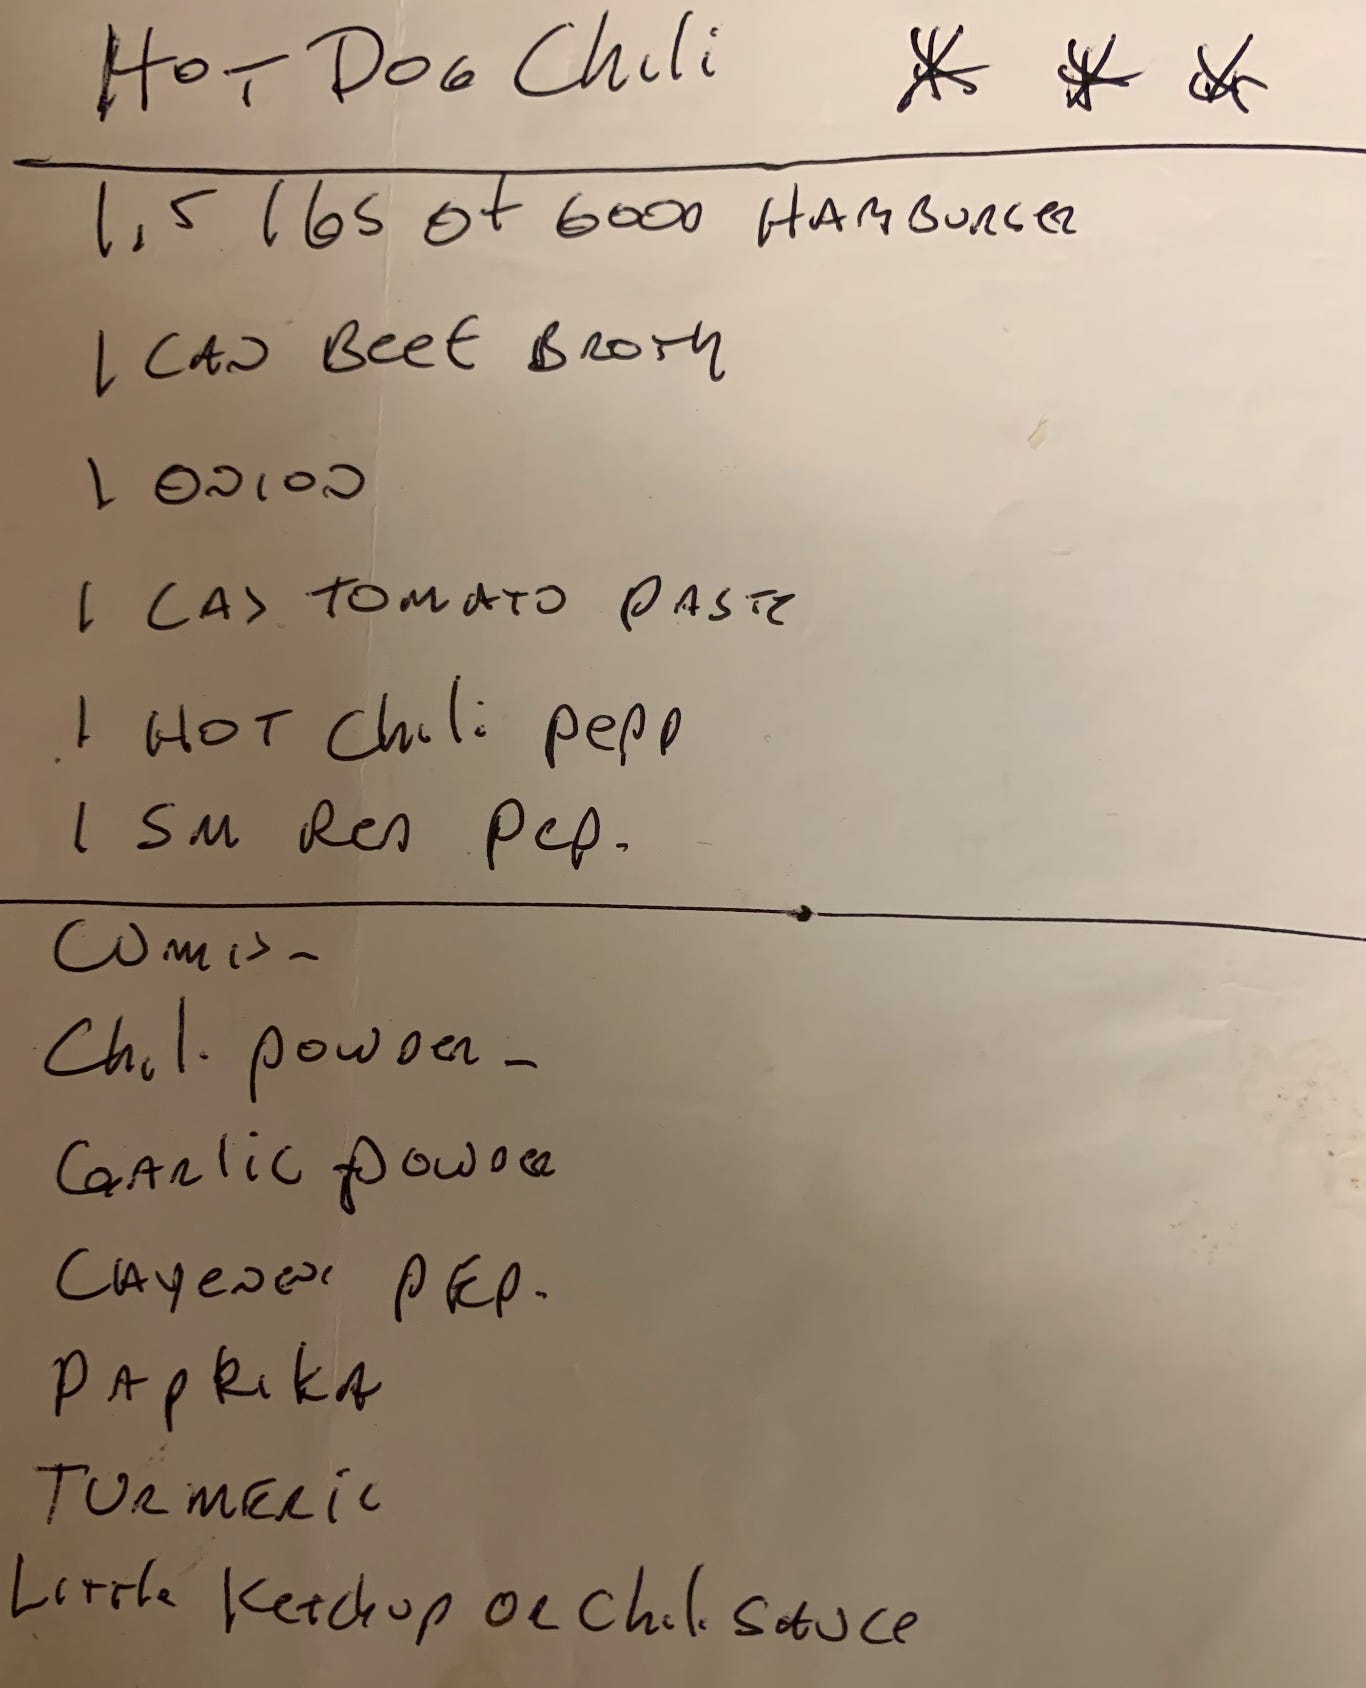 HOT DOG Chili * * *
1.5 lbs of GOOD HAMBURGER
1 CAN BEEF BROTH
1 ONION
1 CAN TOMATO PASTE
1 HOT Chili pepp
1 SM RED PEP.
CUMIN -
Chili powder -
GARlic powder
CAYENENE PEP.
PAPRIKA
TURMERIC
Little Ketchup OR Chili SAUCE